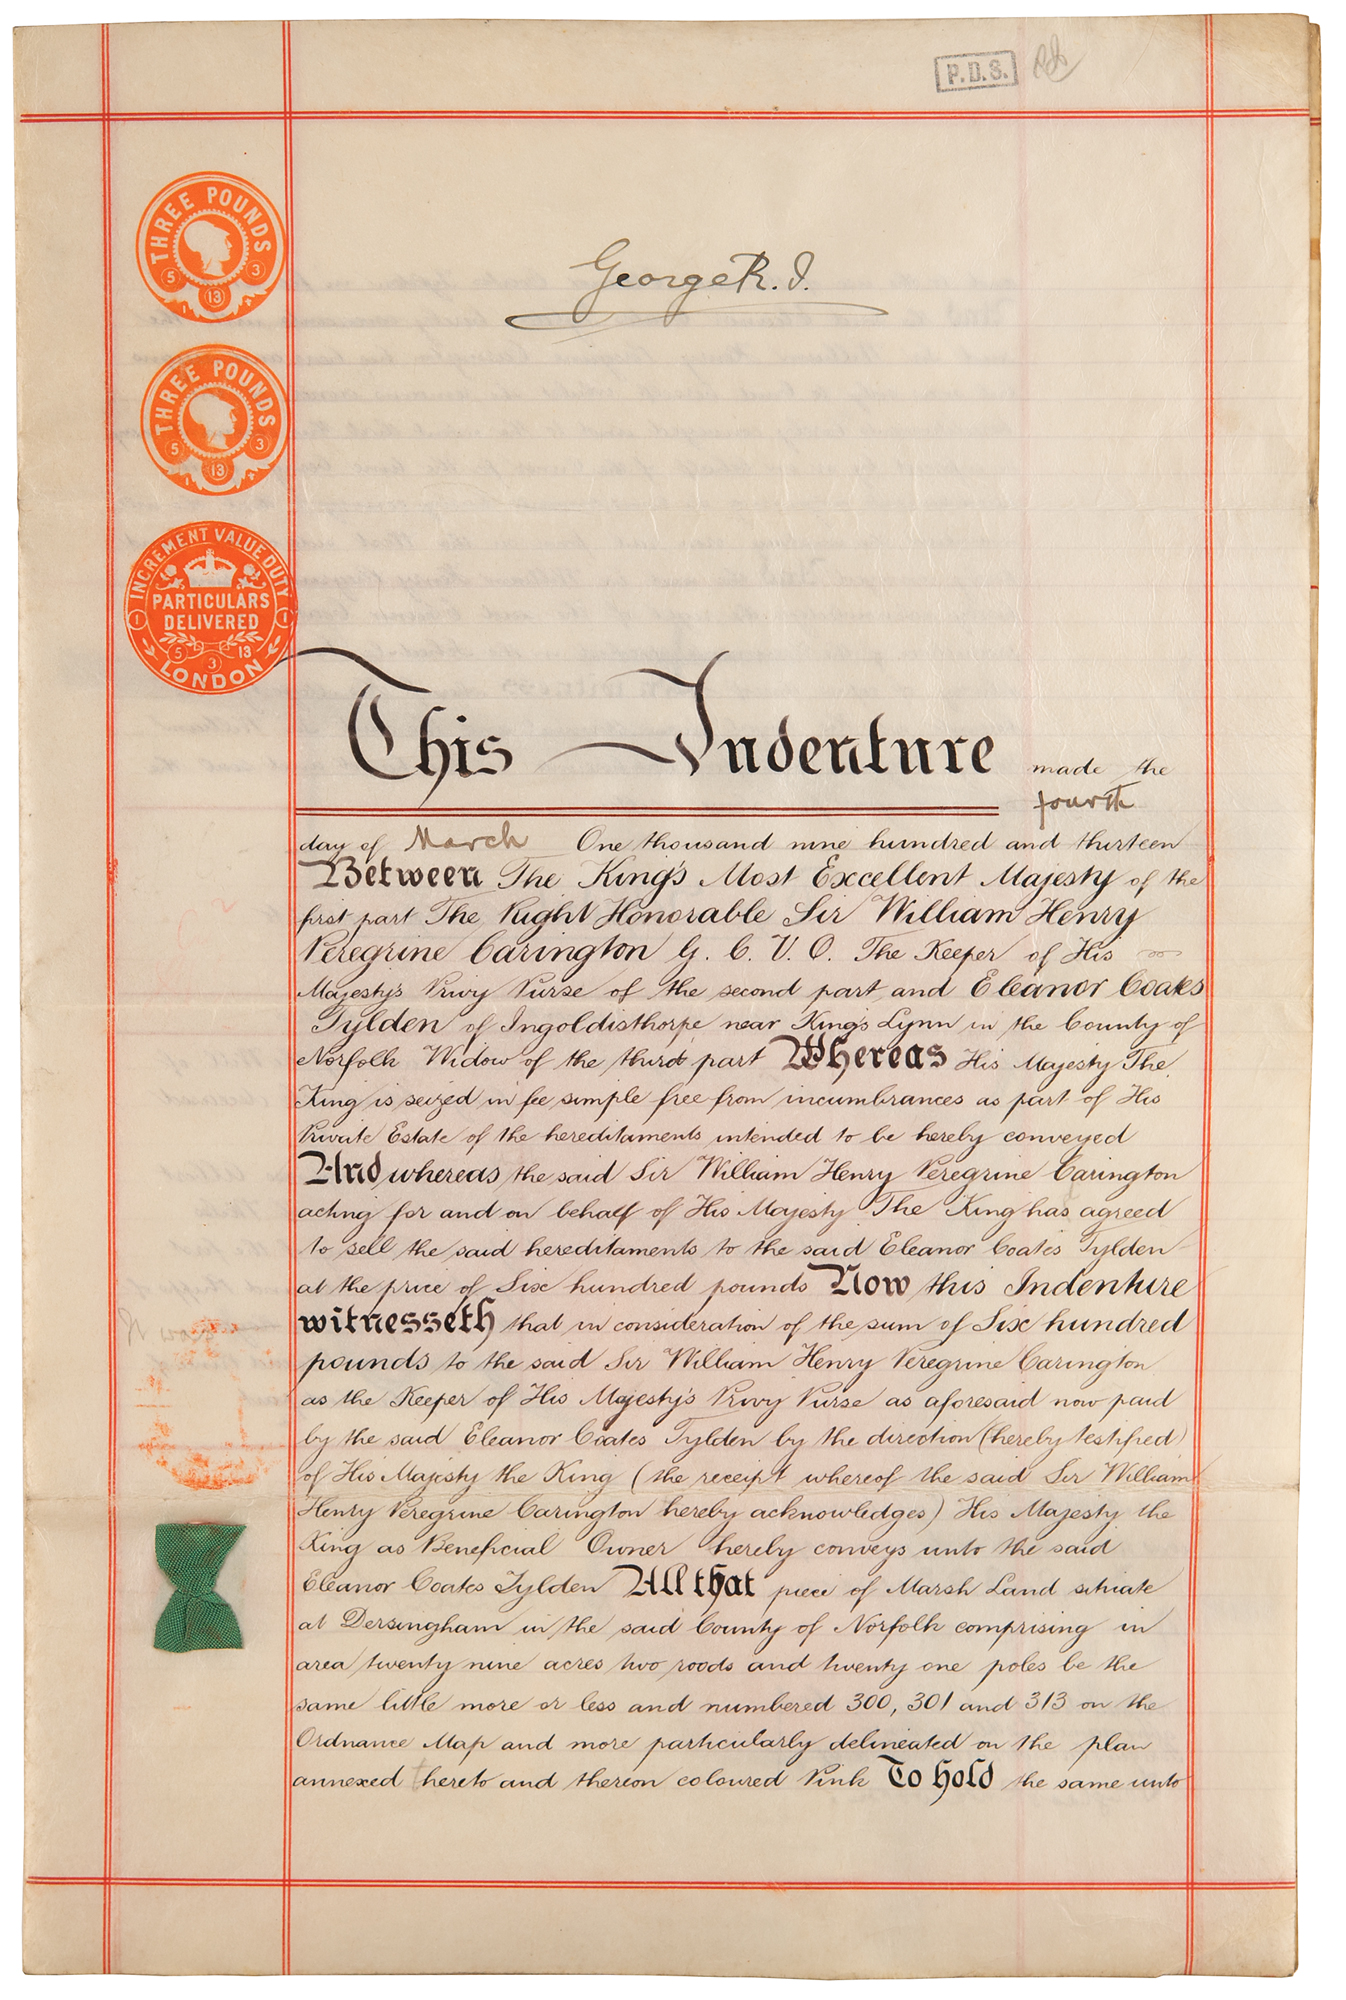 P.D.S.
George R.I.
THREE POUNDS
5 13 3
THREE POUNDS
5 13 3
INCREMENT VALUE DUTY
PARTICULARS
DELIVERED
1 1
5 3 13
LONDON
This Indenture made the
fourth
day of March One thousand nine hundred and thirteen
Between The King's Most Excellent Majesty of the
first part The Right Honorable Sir William Henry
Peregrine Carington G. C. V. O. The Keeper of His
Majesty's Privy Purse of the second part and Eleanor Coates
Tylden of Ingoldisthorpe near King's Lynn in the County of
Norfolk Widow of the third part Whereas His Majesty The
King is seized in fee simple free from incumbrances as part of His
Private Estate of the hereditaments intended to be hereby conveyed
And whereas the said Sir William Henry Peregrine Carington
acting for and on behalf of His Majesty The King has agreed
to sell the said hereditaments to the said Eleanor Coates Tylden
at the price of Six hundred pounds Now this Indenture
witnesseth that in consideration of the sum of Six hundred
pounds to the said Sir William Henry Peregrine Carington
as the Keeper of His Majesty's Privy Purse as aforesaid now paid
by the said Eleanor Coates Tylden by the direction (hereby testified)
of His Majesty the King (the receipt whereof the said Sir William
Henry Peregrine Carington hereby acknowledges) His Majesty the
King as Beneficial Owner hereby conveys unto the said
Eleanor Coates Tylden All that piece of Marsh Land situate
at Dersingham in the said County of Norfolk comprising in
area twenty nine acres two roods and twenty one poles be the
same little more or less and numbered 300, 301 and 313 on the
Ordnance Map and more particularly delineated on the plan
annexed hereto and thereon coloured Pink To hold the same unto